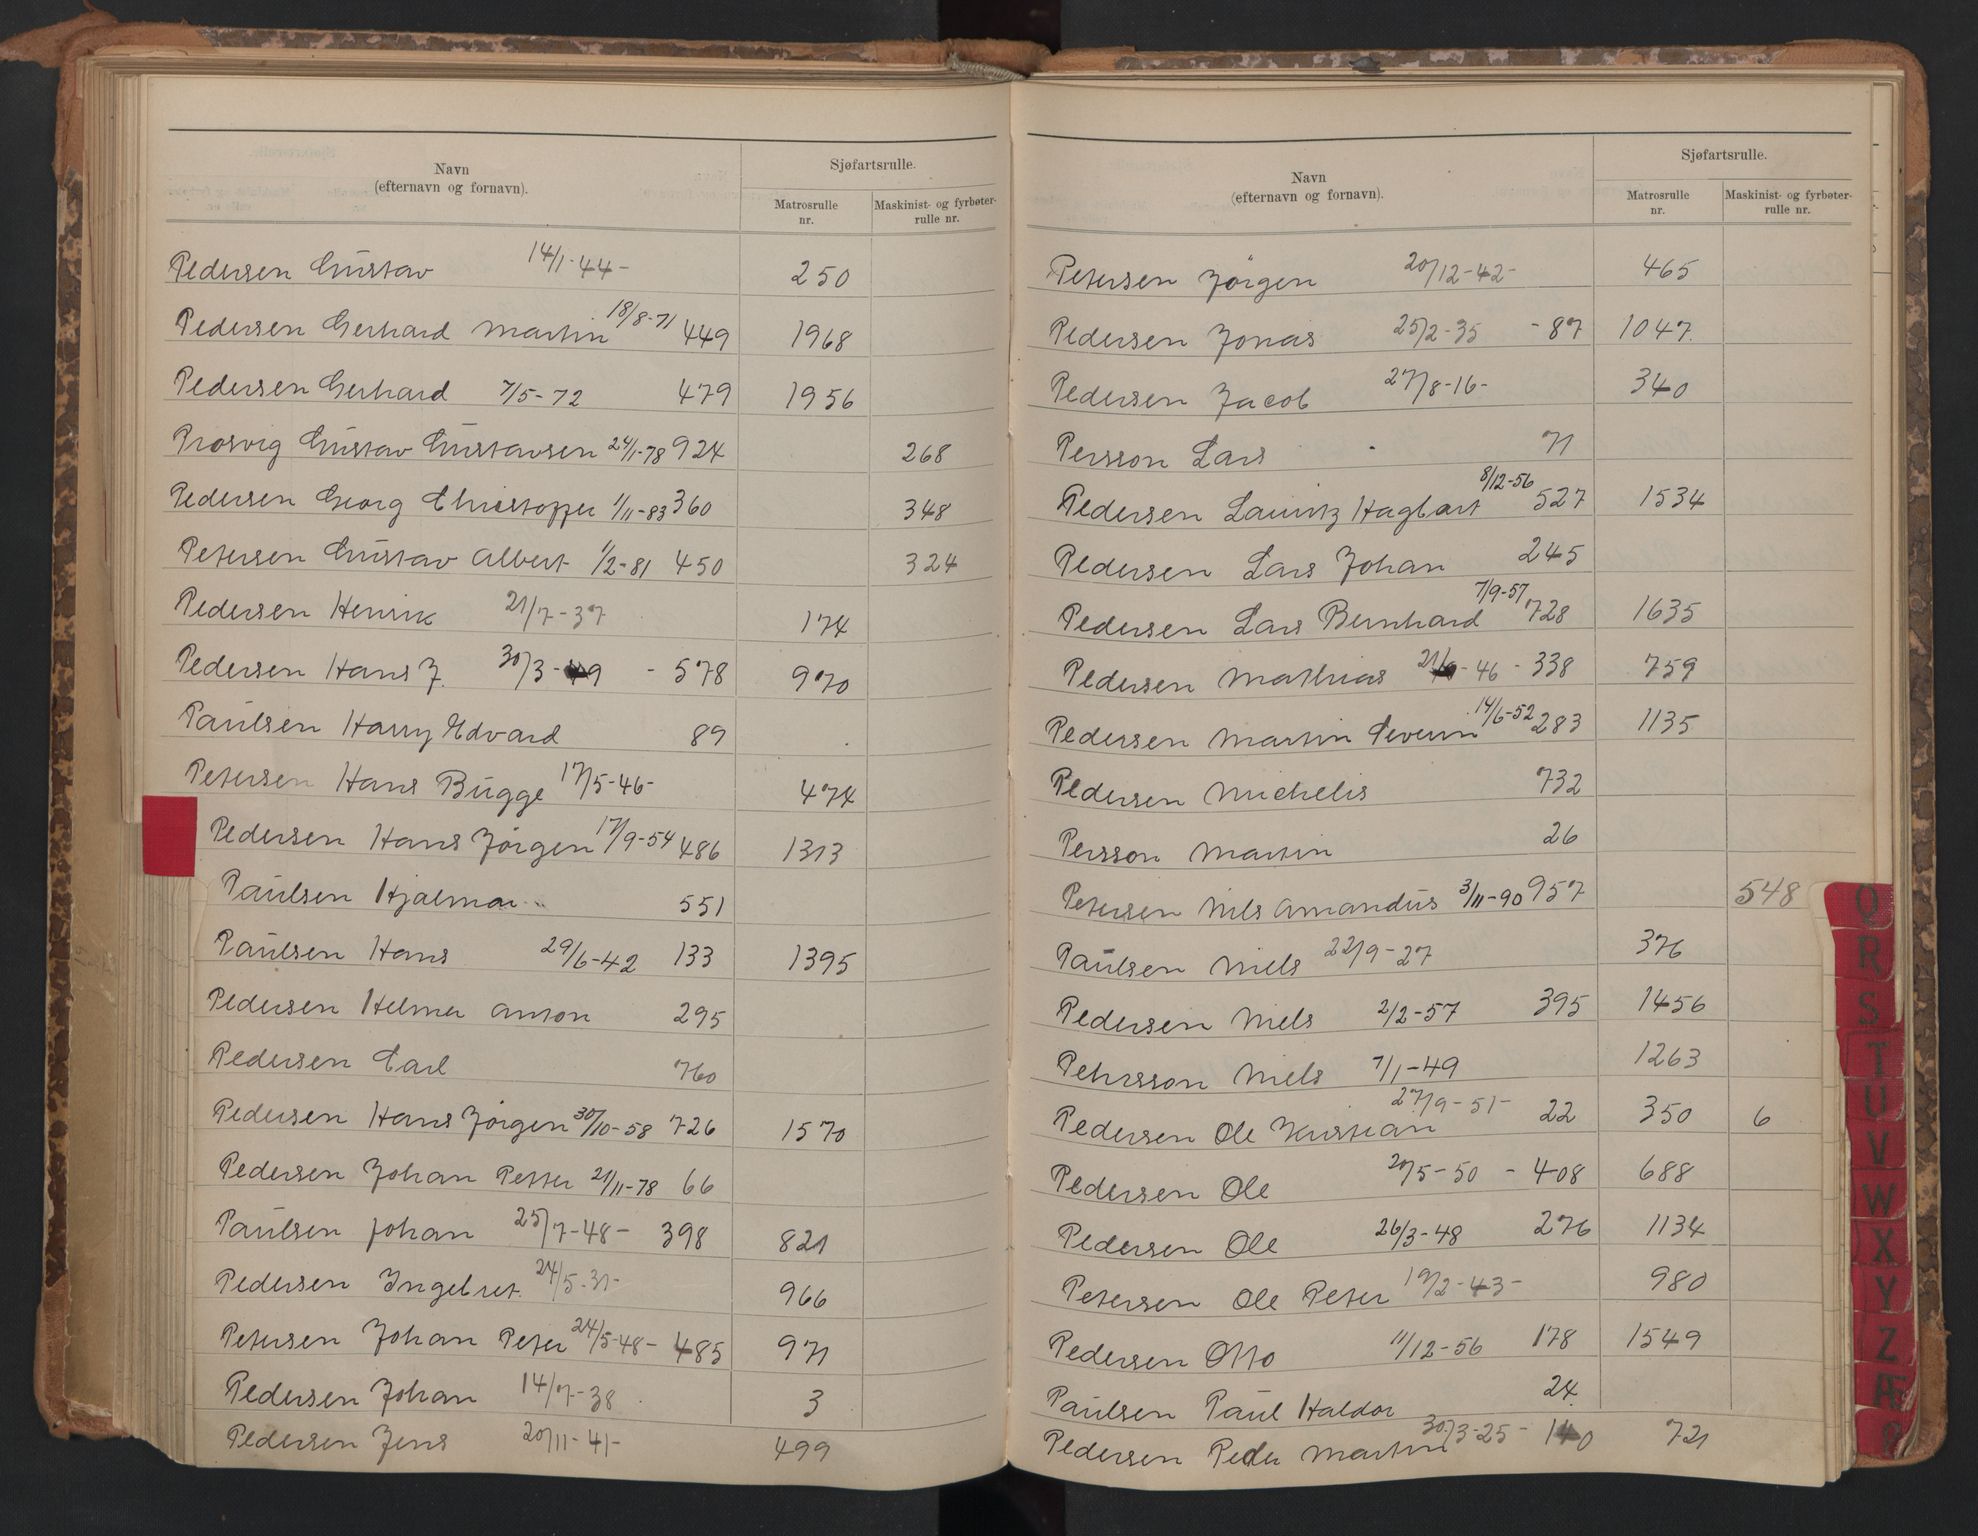 Navn
(efternavn og fornavn).
Sjøfartsrulle.
Matrosrulle nr.
Maskinist- og fyrbøter-rulle nr.
Pedersen Gustav 14/1-44- 250
Pedersen Gerhard Martin 18/8-71 449 1968
Pedersen Gerhard 7/5-72 479 1956
Prosvig Gustav Gustavsen 24/1-78 924 268
Pedersen Georg Christoffer 1/11-83 360 348
Petersen Gustav Albert 1/2-81 450 324
Pedersen Henrik 21/7-37 174
Pedersen Hans J. 30/3-49 - 578 970
Paulsen Harry Edvard 89
Petersen Hans Bugge 17/5-46- 474
Pedersen Hans Jørgen 17/9-54 486 1313
Paulsen Hjalmar 551
Paulsen Hans 29/6-42 133 1395
Pedersen Helmer Anton 295
Pedersen Carl 760
Pedersen Hans Jørgen 30/10-58 726 1570
Pedersen Johan Petter 21/11-78 66
Paulsen Johan 25/7-48- 398 821
Pedersen Ingebret. 24/5-31- 966
Petersen Johan Peter 24/5-48- 485 971
Pedersen Johan 14/7-38 3
Pedersen Jens 20/11-41- 499
Navn
(efternavn og fornavn).
Sjøfartsrulle.
Matrosrulle nr.
Maskinist- og fyrbøter-rulle nr.
Petersen Jörgen 20/12-42- 465
Pedersen Jonas 25/2-35 - 87 1047
Pedersen Jacob 27/8-16- 340
Persson Lars 71
Pedersen Lauritz Hagbart 8/12-56 527 1534
Pedersen Lars Johan 245
Pedersen Lars Bernhard 7/9-57 728 1635
Pedersen Mathias 46 - 338 759
Pedersen Martin Severin 14/6-52 283 1135
Pedersen Michelis 732
Persson Martin 26
Petersen Nils Amandus 3/11-90 957 548
Paulsen Niels 22/9-27 376
Pedersen Niels 2/2-57 395 1456
Pehrsson Niels 7/1-49 1263
Pedersen Ole Kristian 27/9-51- 22 350 6
Pedersen Ole 20/5-50 - 408 688
Pedersen Ole 26/3-48 276 1134
Petersen Ole Peter 19/2-43- 980
Pedersen Otto 11/12-56 178 1549
Paulsen Paul Haldor 24.
Pedersen Peder Martin 30/3-25 - 140 721
Q
R
S
T
U
V
W
X
Y
Z
Æ
Ø